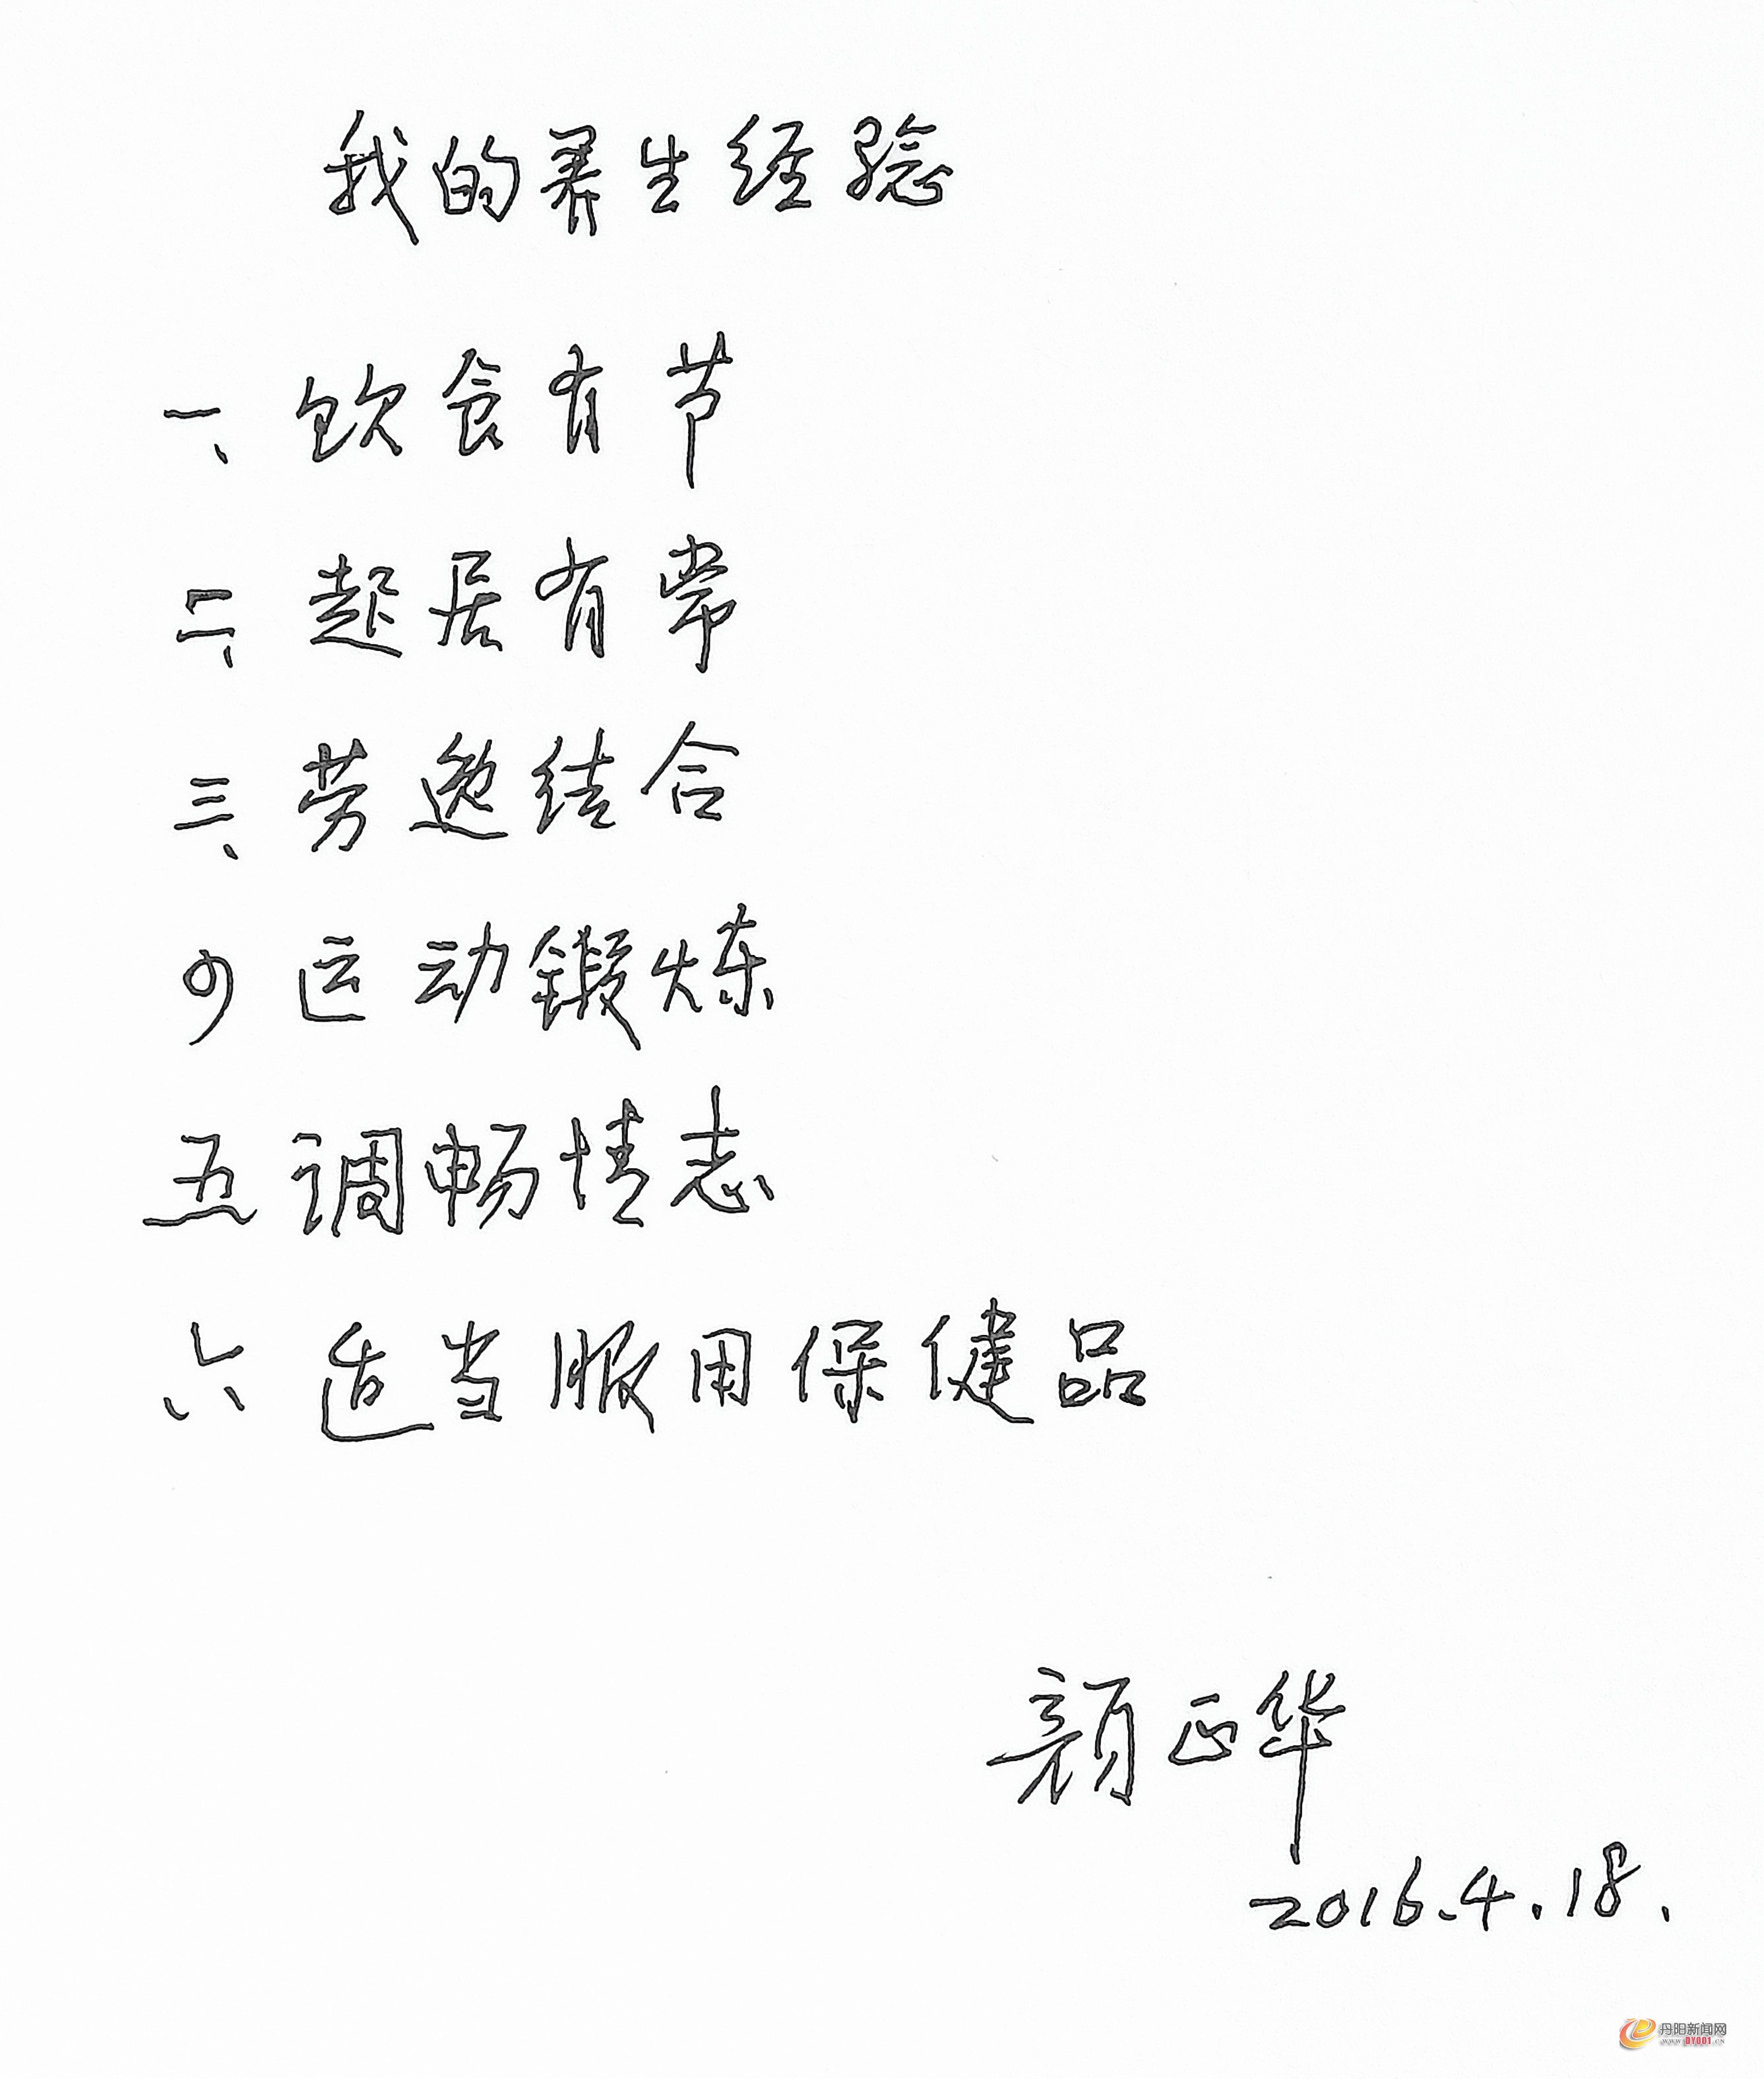 我的养生经验
一、饮食有节
二、起居有常
三、劳逸结合
四 运动锻炼
五 调畅情志
六 适当服用保健品
颜正华
2016.4.18.
丹阳新闻网
www.DY001.CN